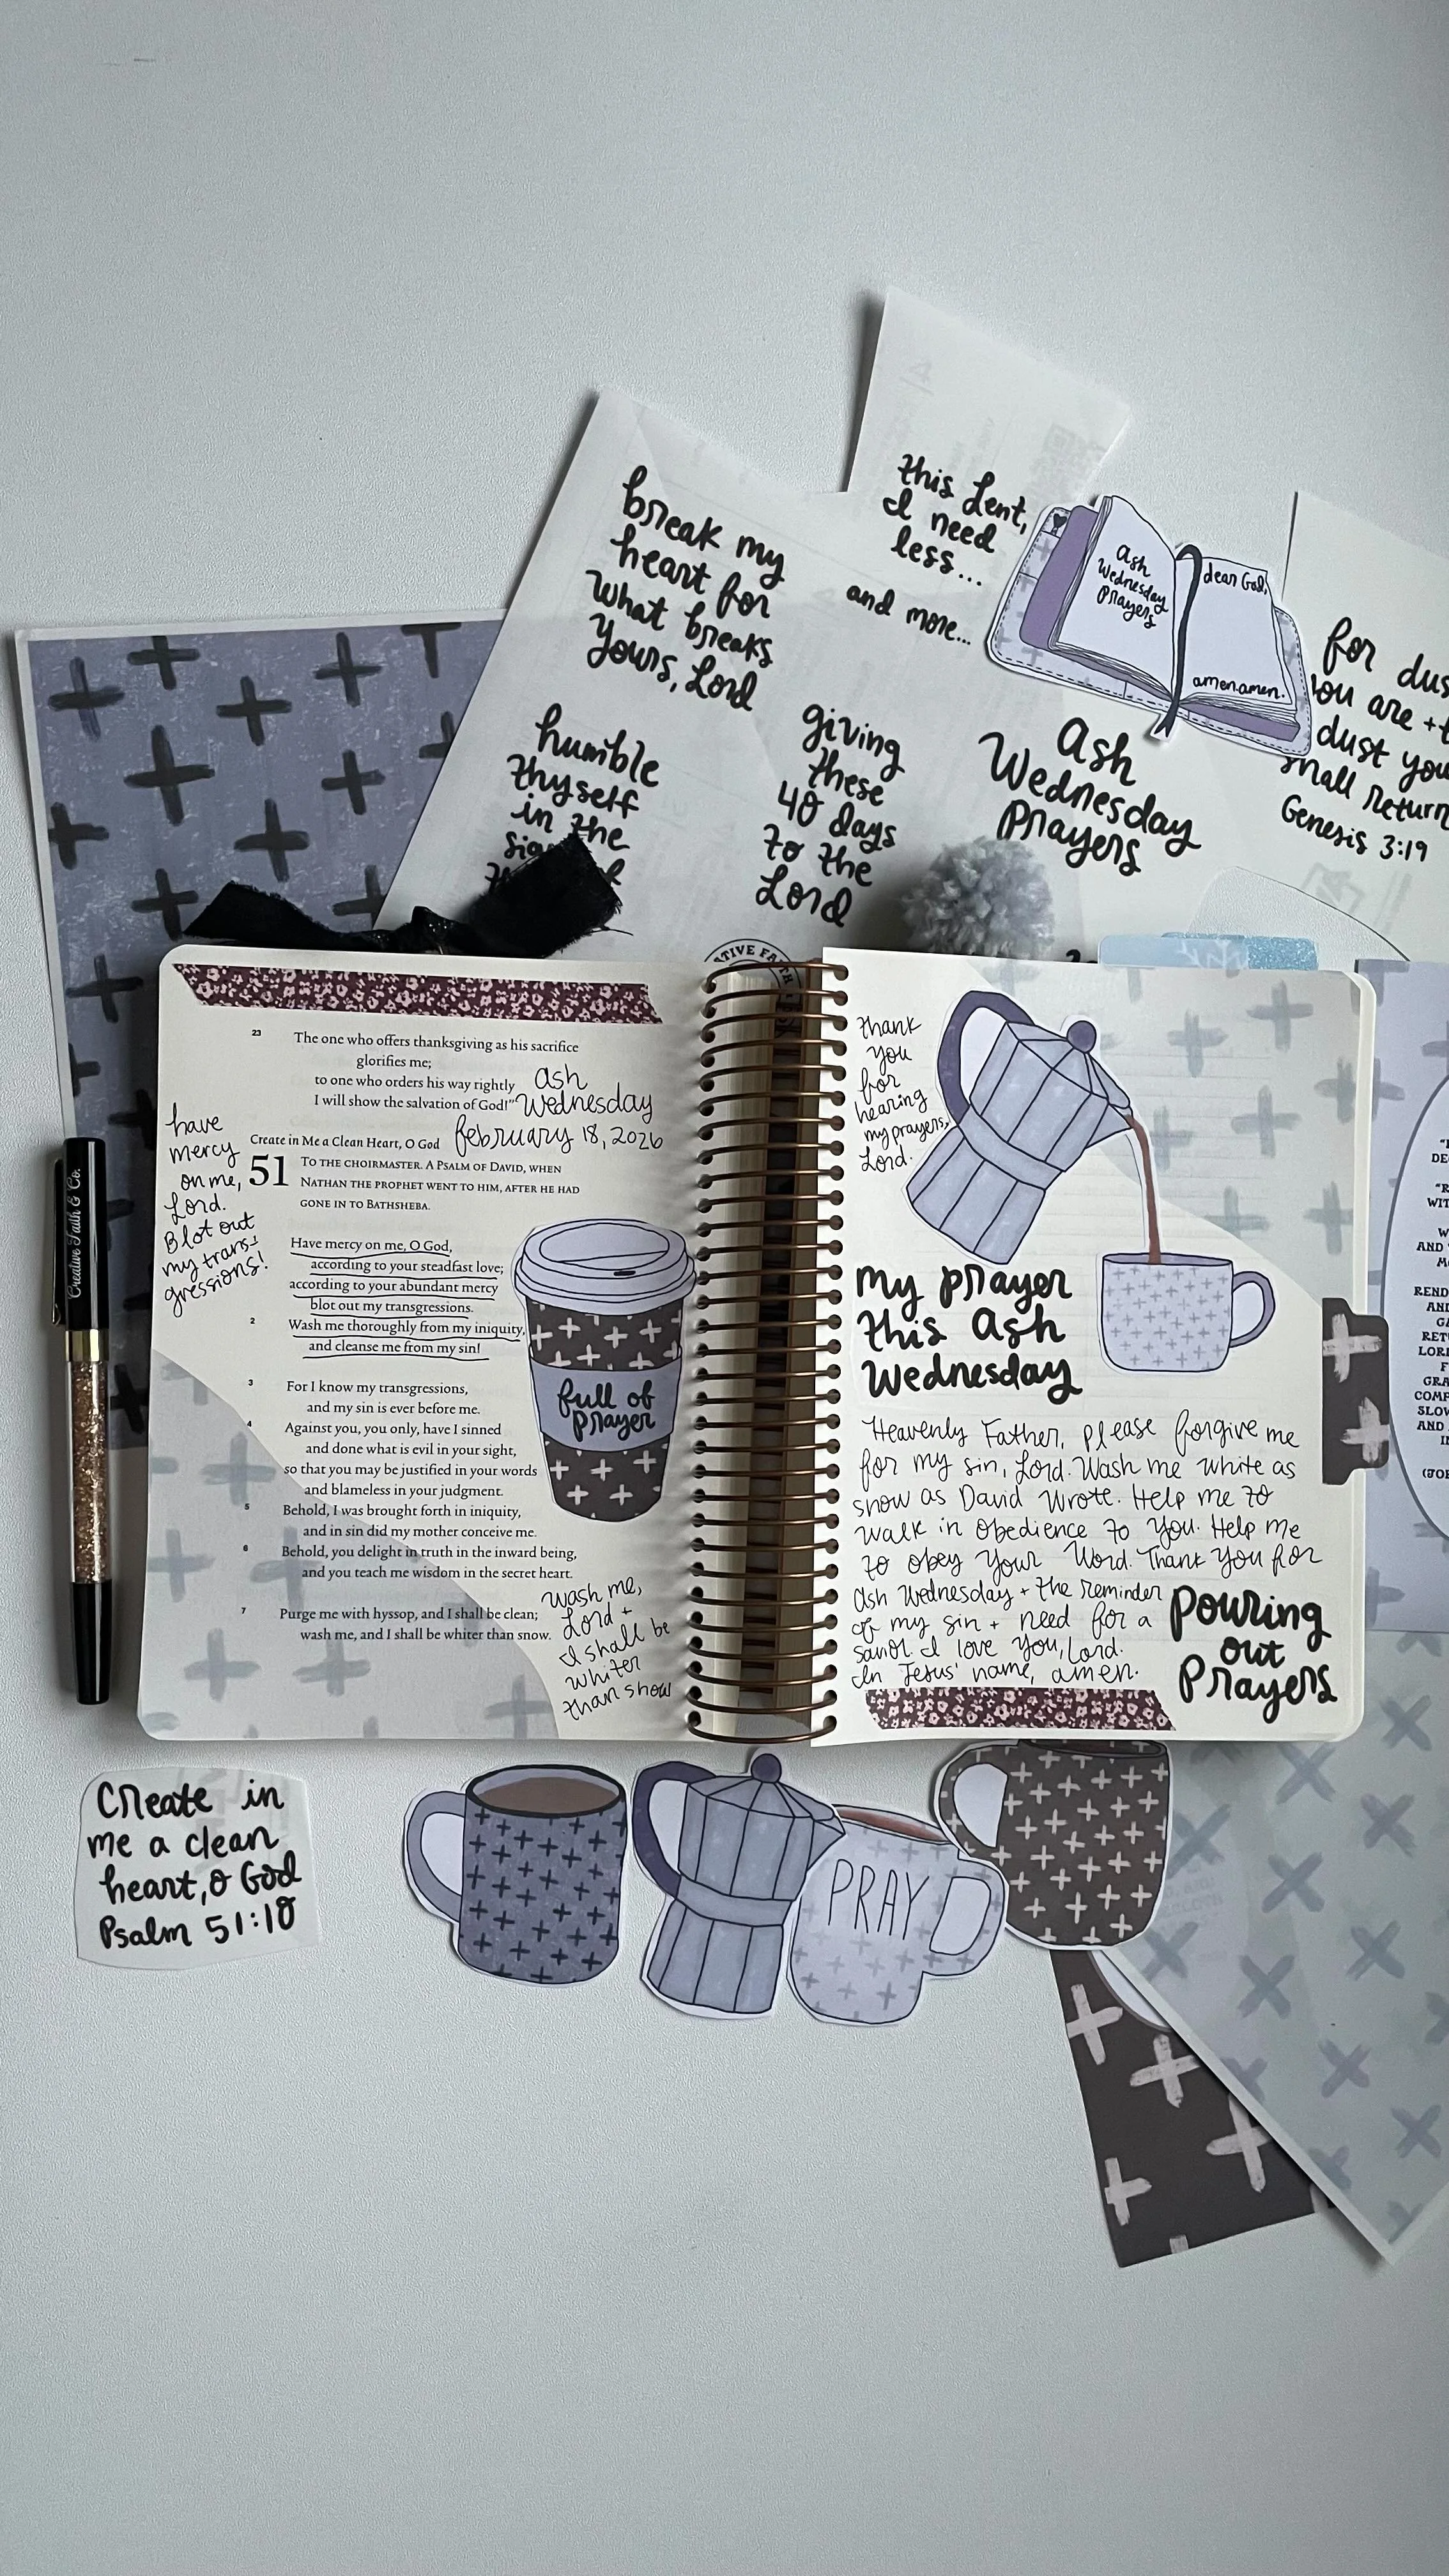 this Lent,
I need
less...
and more...
break my
heart for
what breaks
Yours, Lord
Ash
Wednesday
Prayers
dear God,
amen.amen.
for dus
you are +t
dust you
shall return
Genesis 3:19
humble
thyself
in the
giving
these
40 days
to the
Lord
Ash
Wednesday
Prayers
ATIVE FAITH
Creative Faith & Co.
23 The one who offers thanksgiving as his sacrifice
glorifies me;
to one who orders his way rightly
I will show the salvation of God!”
ash
Wednesday
february 18, 2026
have
mercy
on me,
Lord.
Blot out
my trans-
gressions!
Create in Me a Clean Heart, O God
51 TO THE CHOIRMASTER. A PSALM OF DAVID, WHEN
NATHAN THE PROPHET WENT TO HIM, AFTER HE HAD
GONE IN TO BATHSHEBA.
Have mercy on me, O God,
according to your steadfast love;
according to your abundant mercy
blot out my transgressions.
2 Wash me thoroughly from my iniquity,
and cleanse me from my sin!
3 For I know my transgressions,
and my sin is ever before me.
4 Against you, you only, have I sinned
and done what is evil in your sight,
so that you may be justified in your words
and blameless in your judgment.
5 Behold, I was brought forth in iniquity,
and in sin did my mother conceive me.
6 Behold, you delight in truth in the inward being,
and you teach me wisdom in the secret heart.
7 Purge me with hyssop, and I shall be clean;
wash me, and I shall be whiter than snow.
full of
prayer
wash me,
Lord +
I shall be
whiter
than snow
thank
you
for
hearing
my prayers,
Lord.
my prayer
this Ash
Wednesday
Heavenly Father, please forgive me
for my sin, Lord. Wash me white as
snow as David wrote. Help me to
walk in obedience to You. Help me
to obey Your Word. Thank You for
Ash Wednesday + the reminder
of my sin + need for a
savior. I love You, Lord.
In Jesus' name, amen.
Pouring
out
Prayers
WIT
AND
REND
AND
RET
LORD
GRA
COMP
SLOW
AND
Create in
me a clean
heart, O God
Psalm 51:10
PRAY